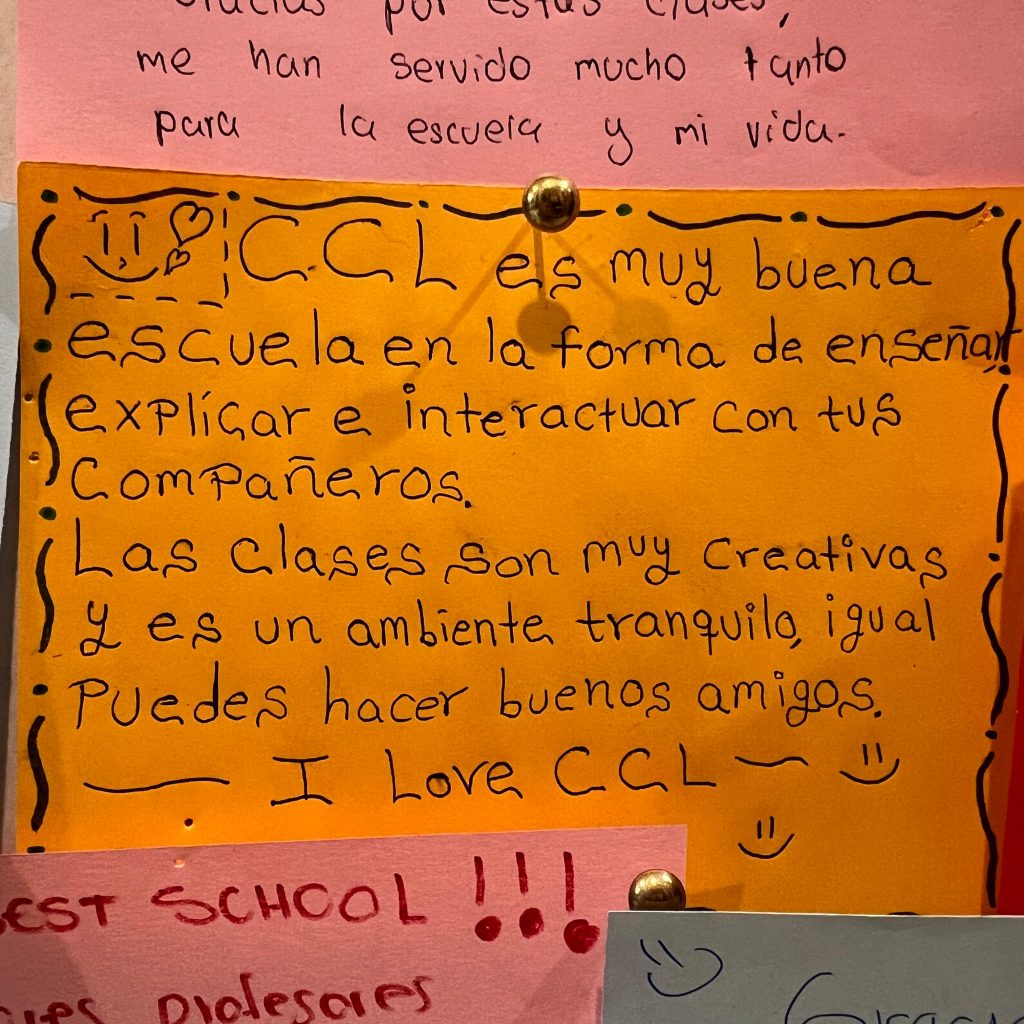 Gracias por estas clases,
me han servido mucho tanto
para la escuela y mi vida.
CCL es muy buena
escuela en la forma de enseñar,
explícar e interactuar con tus
compañeros.
Las clases son muy creativas
y es un ambiente tranquilo, igual
puedes hacer buenos amigos.
I Love CCL
EST SCHOOL !!!
profesores